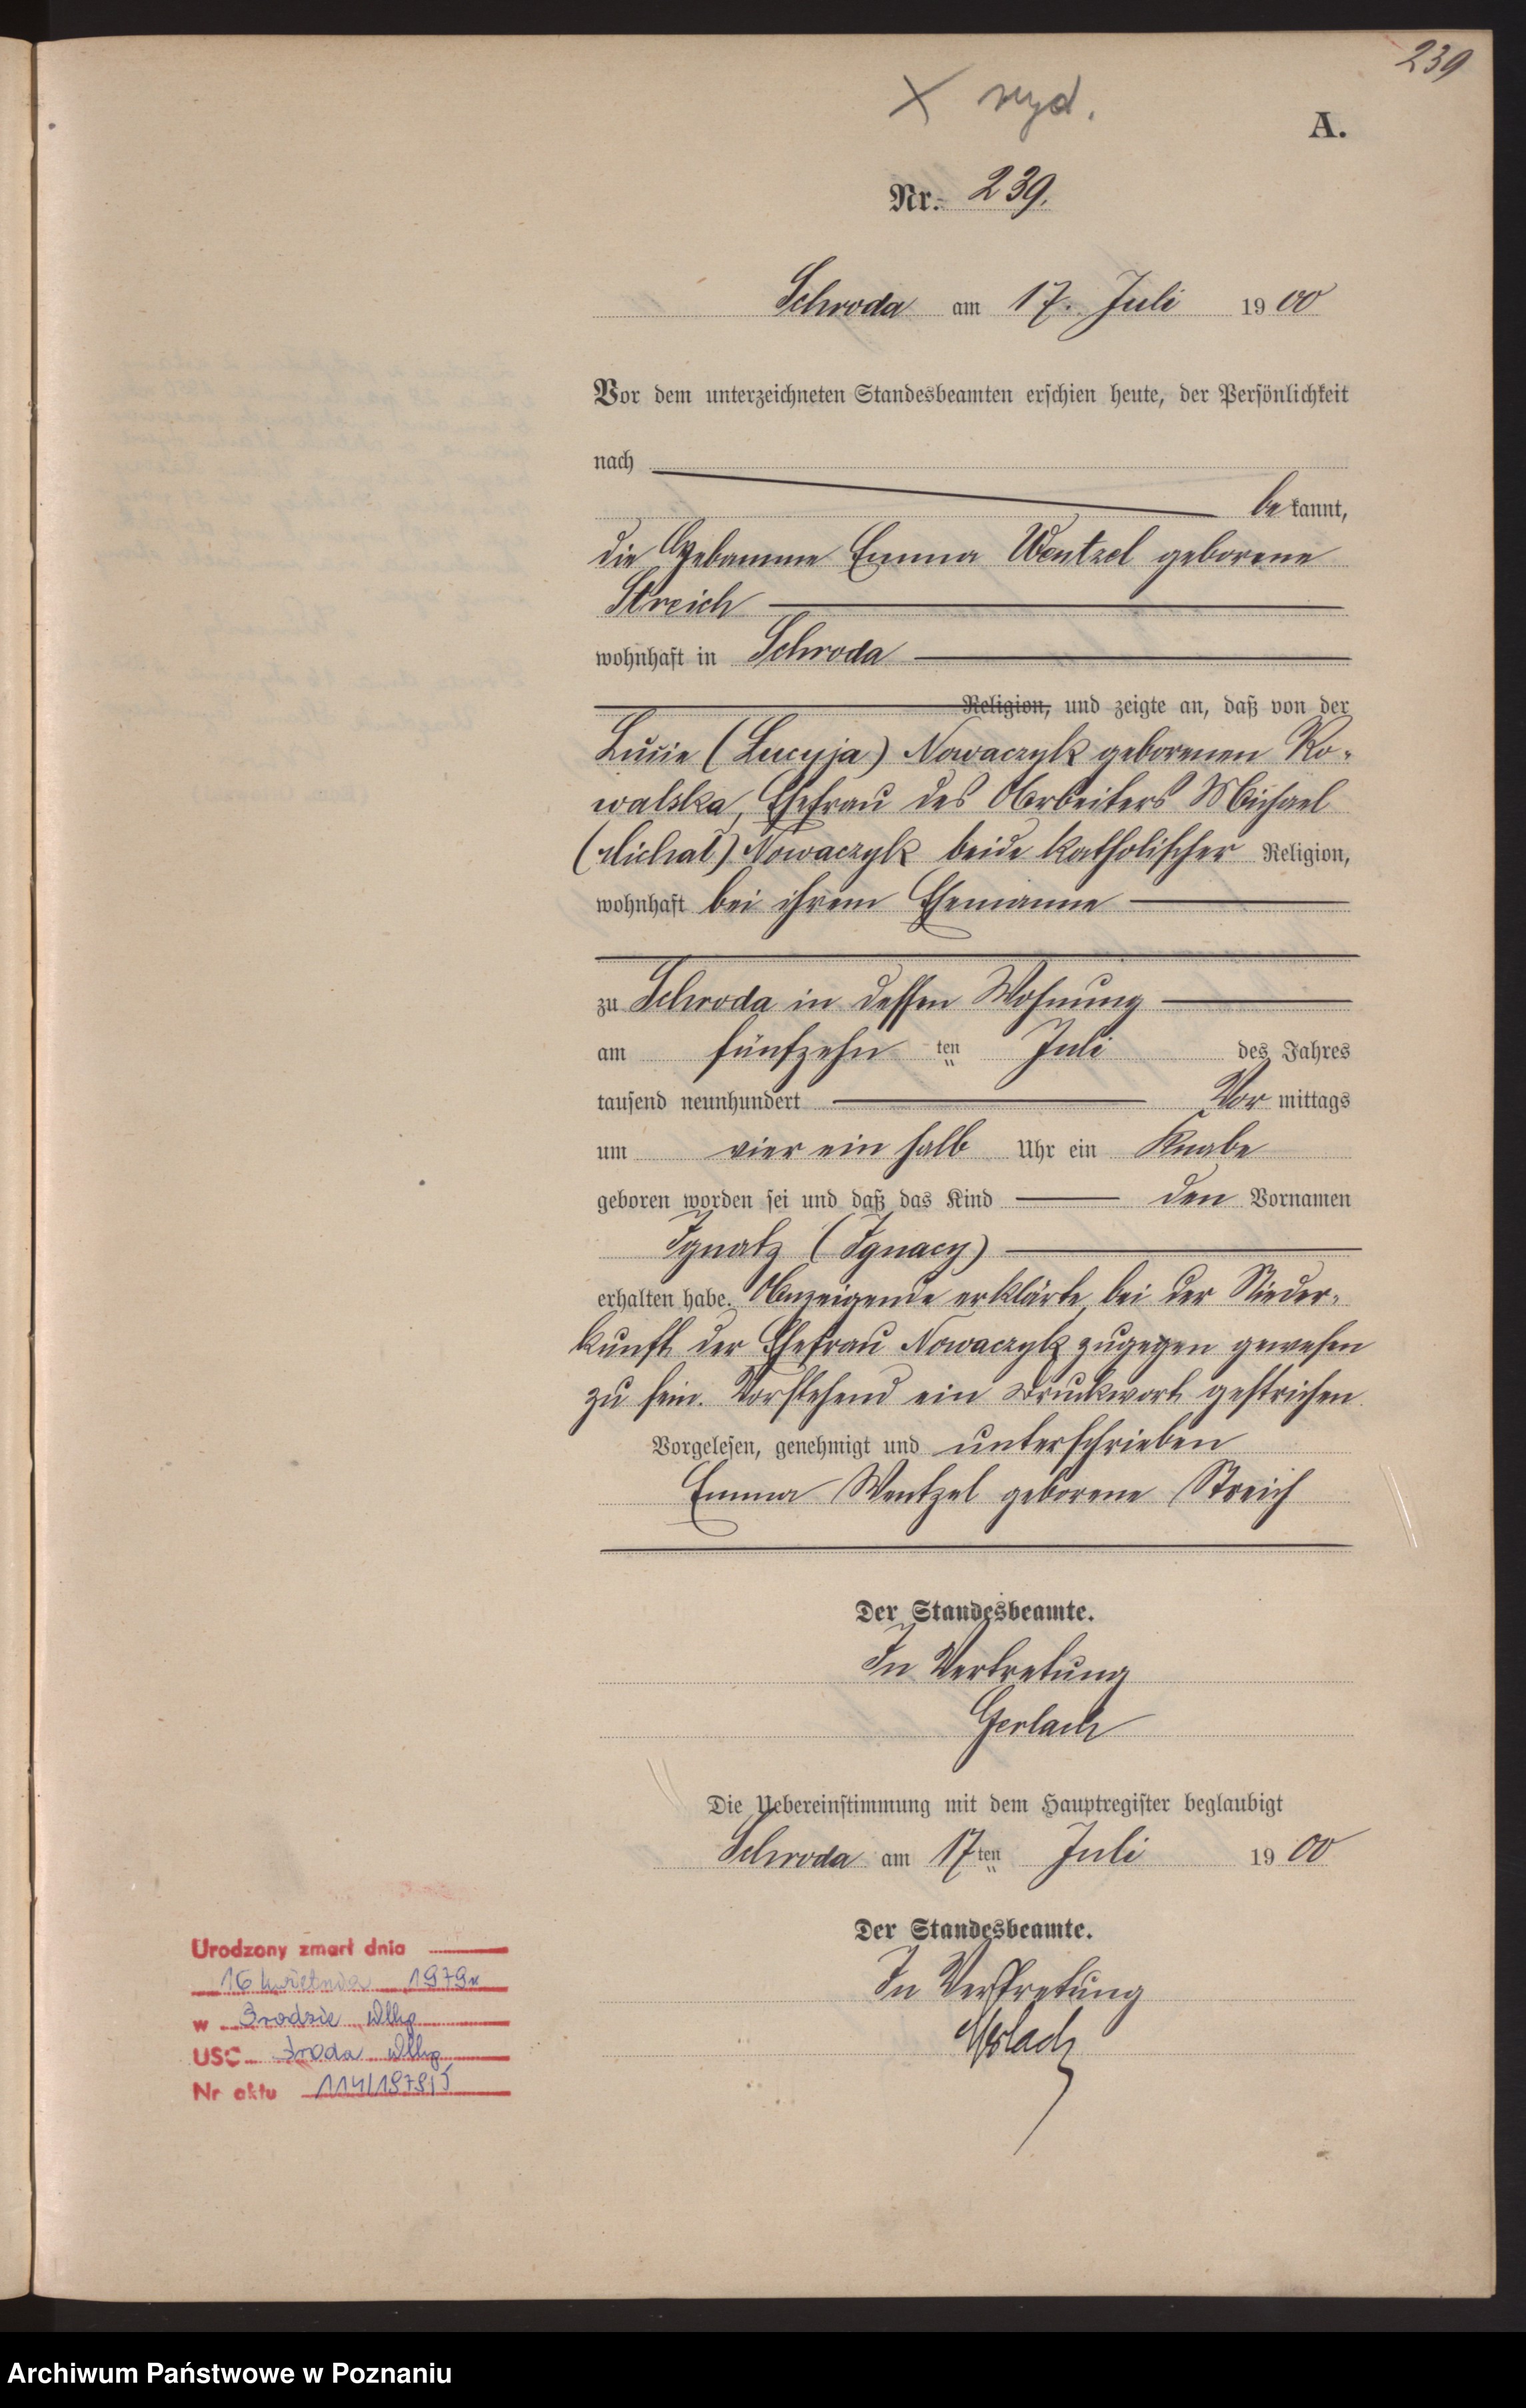 239
X wyd.
A.
Nr. 239.
Schroda am 17. Juli 1900
Vor dem unterzeichneten Standesbeamten erschien heute, der Persönlichkeit
nach
bekannt,
die Hebamme Emma Wentzel geborene
Streich
wohnhaft in Schroda
Religion, und zeigte an, daß von der
Lucie (Lucyja) Nowaczyk geborenen Ko-
walska, Ehefrau des Arbeiters Michael
(Michał) Nowaczyk beide katholischer Religion,
wohnhaft bei ihrem Ehemanne
zu Schroda in dessen Wohnung
am fünfzehn ten Juli des Jahres
tausend neunhundert Vor mittags
um vier ein halb Uhr ein Knabe
geboren worden sei und daß das Kind den Vornamen
Ignatz (Ignacy)
erhalten habe. Anzeigende erklärte, bei der Nieder-
kunft der Ehefrau Nowaczyk zugegen gewesen
zu sein. Vorstehend ein Druckwort gestrichen.
Vorgelesen, genehmigt und unterschrieben
Emma Wentzel geborene Streich
Der Standesbeamte.
In Vertretung
Gerlach
Die Uebereinstimmung mit dem Hauptregister beglaubigt
Schroda am 17ten Juli 1900
Der Standesbeamte.
In Vertretung
Gerlach
Urodzony zmarł dnia
16 kwietnia 1979r
w Środzie Wlkp
USC Środa Wlkp
Nr aktu 114/1979/Ś
Archiwum Państwowe w Poznaniu